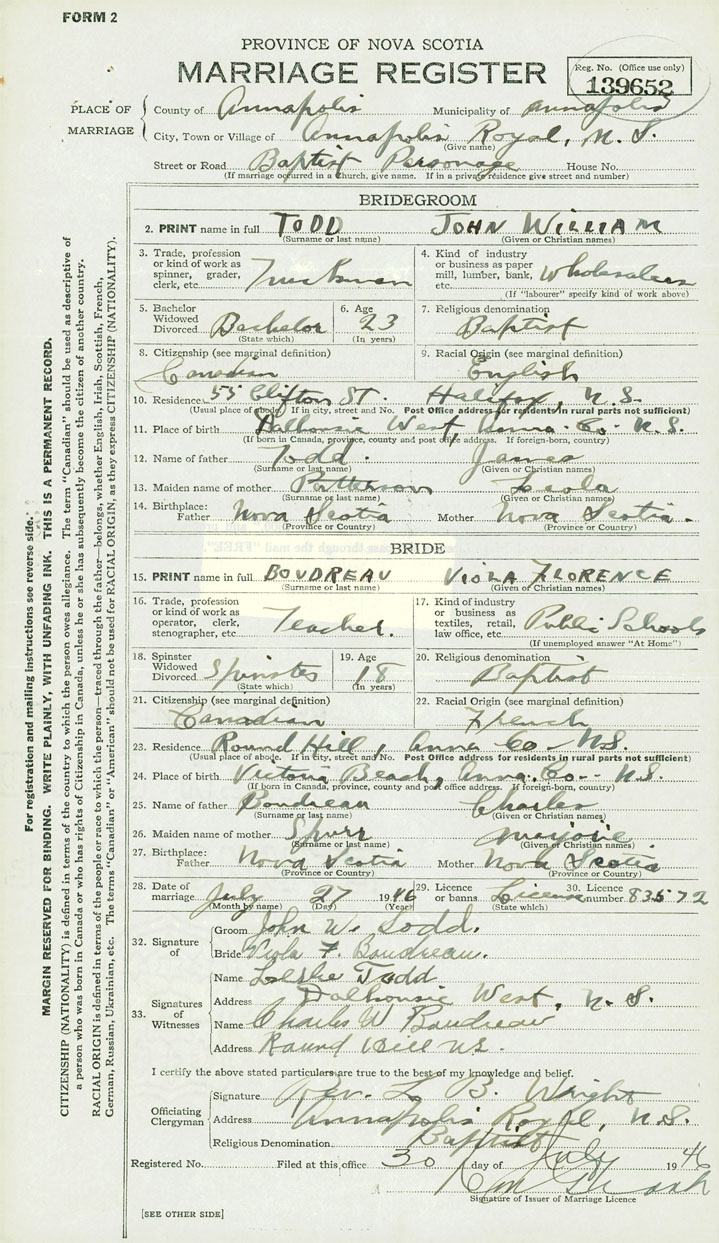 FORM 2
PROVINCE OF NOVA SCOTIA
MARRIAGE REGISTER
Reg. No. (Office use only)
139652
PLACE OF MARRIAGE
County of Annapolis Municipality of Annapolis
City, Town or Village of Annapolis Royal, N.S.
(Give name)
Street or Road Baptist Parsonage House No.
(If marriage occurred in a church, give name. If in a private residence give street and number)
BRIDEGROOM
2. PRINT name in full TODD JOHN WILLIAM
(Surname or last name) (Given or Christian names)
3. Trade, profession or kind of work as spinner, grader, clerk, etc. Truckman
4. Kind of industry or business as paper mill, lumber, bank, etc. Wholesalers
(If "labourer" specify kind of work above)
5. Bachelor Widowed Divorced Bachelor
(State which)
6. Age 23
(In years)
7. Religious denomination Baptist
8. Citizenship (see marginal definition) Canadian
9. Racial Origin (see marginal definition) English
10. Residence 55 Clifton St. Halifax, N.S.
(Usual place of abode. If in city, street and No. Post Office address for residents in rural parts not sufficient)
11. Place of birth Dalhousie West, Anna. Co. N.S.
(If born in Canada, province, county and post office address. If foreign-born, country)
12. Name of father Todd James
(Surname or last name) (Given or Christian names)
13. Maiden name of mother Patterson Leola
(Surname or last name) (Given or Christian names)
14. Birthplace: Father Nova Scotia Mother Nova Scotia.
(Province or Country) (Province or Country)
BRIDE
15. PRINT name in full BOUDREAU VIOLA FLORENCE
(Surname or last name) (Given or Christian names)
16. Trade, profession or kind of work as operator, clerk, stenographer, etc Teacher.
17. Kind of industry or business as textiles, retail, law office, etc. Public Schools
(If unemployed answer "At Home")
18. Spinster Widowed Divorced Spinster
(State which)
19. Age 18
(In years)
20. Religious denomination Baptist
21. Citizenship (see marginal definition) Canadian
22. Racial Origin (see marginal definition) French
23. Residence Round Hill, Anna Co - N.S.
(Usual place of abode. If in city, street and No. Post Office address for residents in rural parts not sufficient)
24. Place of birth Victoria Beach, Anna. Co. - N.S.
(If born in Canada, province, county and post office address. If foreign-born, country)
25. Name of father Boudreau Charles
(Surname or last name) (Given or Christian names)
26. Maiden name of mother Spurr Marjorie
(Surname or last name) (Given or Christian names)
27. Birthplace: Father Nova Scotia Mother Nova Scotia
(Province or Country) (Province or Country)
28. Date of marriage July 27 1946
(Month by name) (Day) (Year)
29. Licence or banns License
(State which)
30. Licence number 83572
32. Signature of
Groom John W. Todd.
Bride Viola F. Boudreau.
33. Signatures of Witnesses
Name Leslie Todd
Address Dalhousie West, N.S.
Name Charles W Boudreau
Address Round Hill N.S.
I certify the above stated particulars are true to the best of my knowledge and belief.
Officiating Clergyman
Signature Rev. L. B. Wright
Address Annapolis Royal, N.S.
Religious Denomination Baptist
Registered No. Filed at this office 30 day of July 1946
Signature of Issuer of Marriage Licence
[SEE OTHER SIDE]
For registration and mailing instructions see reverse side.
MARGIN RESERVED FOR BINDING. WRITE PLAINLY, WITH UNFADING INK. THIS IS A PERMANENT RECORD.
CITIZENSHIP (NATIONALITY) is defined in terms of the country to which the person owes allegiance. The term "Canadian" should be used as descriptive of
a person who was born in Canada or who has rights of Citizenship in Canada, unless he or she has subsequently become the citizen of another country.
RACIAL ORIGIN is defined in terms of the people or race to which the person—traced through the father—belongs, whether English, Irish, Scottish, French,
German, Russian, Ukrainian, etc. The terms "Canadian" or "American" should not be used for RACIAL ORIGIN, as they express CITIZENSHIP (NATIONALITY).